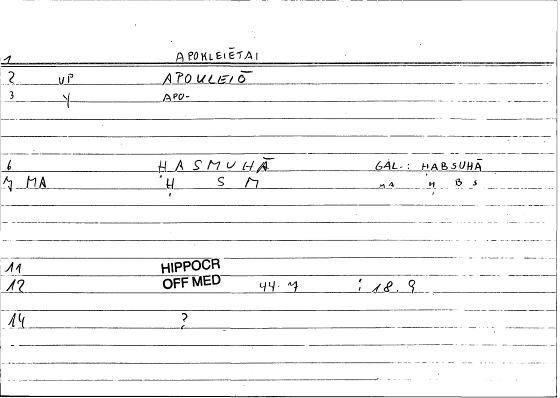 1 APOKLEIĒTAI
2 VP APOKLEIŌ
3 Y APO-
6 ḤASMUHĀ GAL-: ḤABSUHĀ
7 MA Ḥ S M MA Ḥ B S
11 HIPPOCR
12 OFF MED 44.7 : 18.9
14 ?